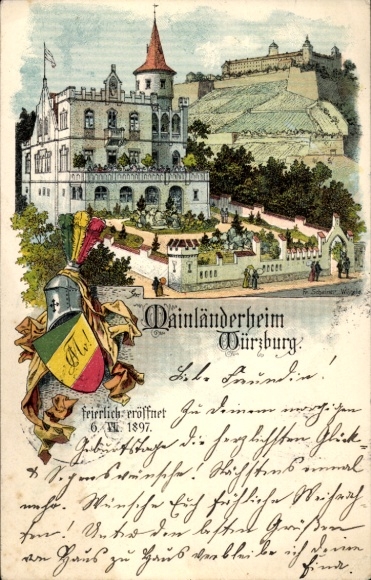 Mainländerheim
Würzburg.
feierlich eröffnet
6. VII. 1897.
Liebe Freundin!
Zu Deinem morgigen
Geburtstage die herzlichsten Glück-
& Segenswünsche! Nächstens einmal
mehr. Wünsche Euch fröhliche Weihnach-
ten! Unter den besten Grüßen
von Haus zu Haus verbleibe ich Deine